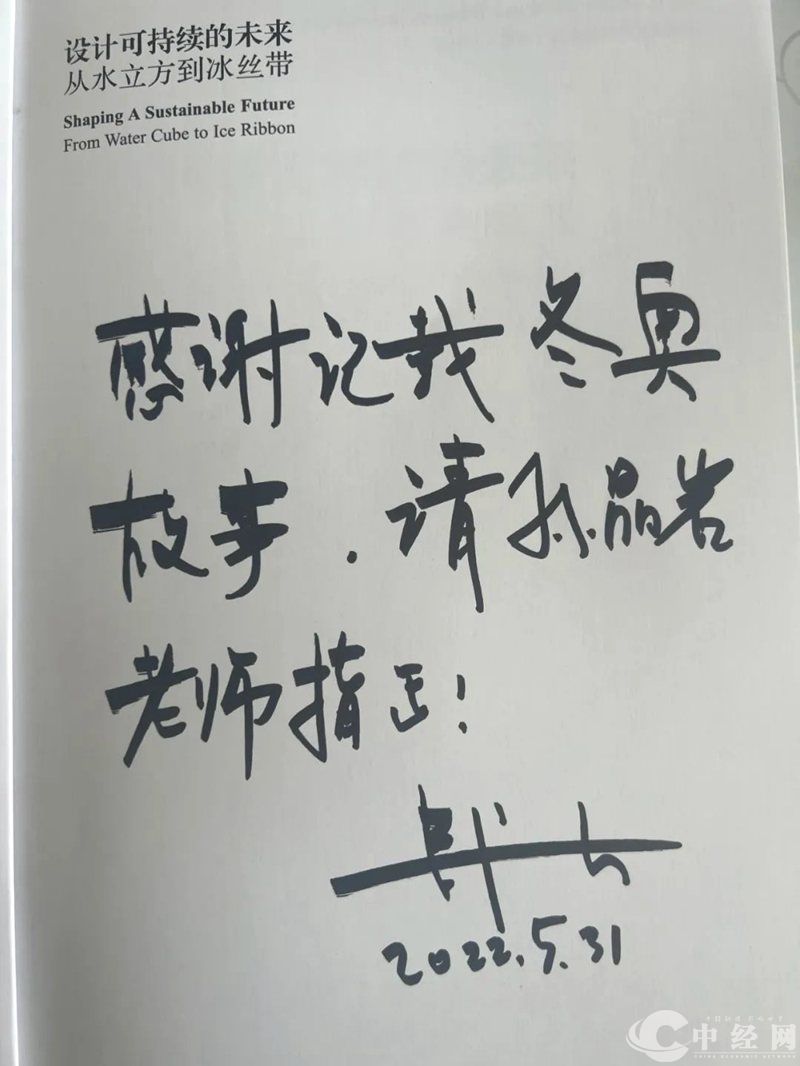 设计可持续的未来
从水立方到冰丝带
Shaping A Sustainable Future
From Water Cube to Ice Ribbon
感谢记载冬奥
故事.请孙晶岩
老师指正!
2022.5.31
中经网
CHINA ECONOMIC NETWORK